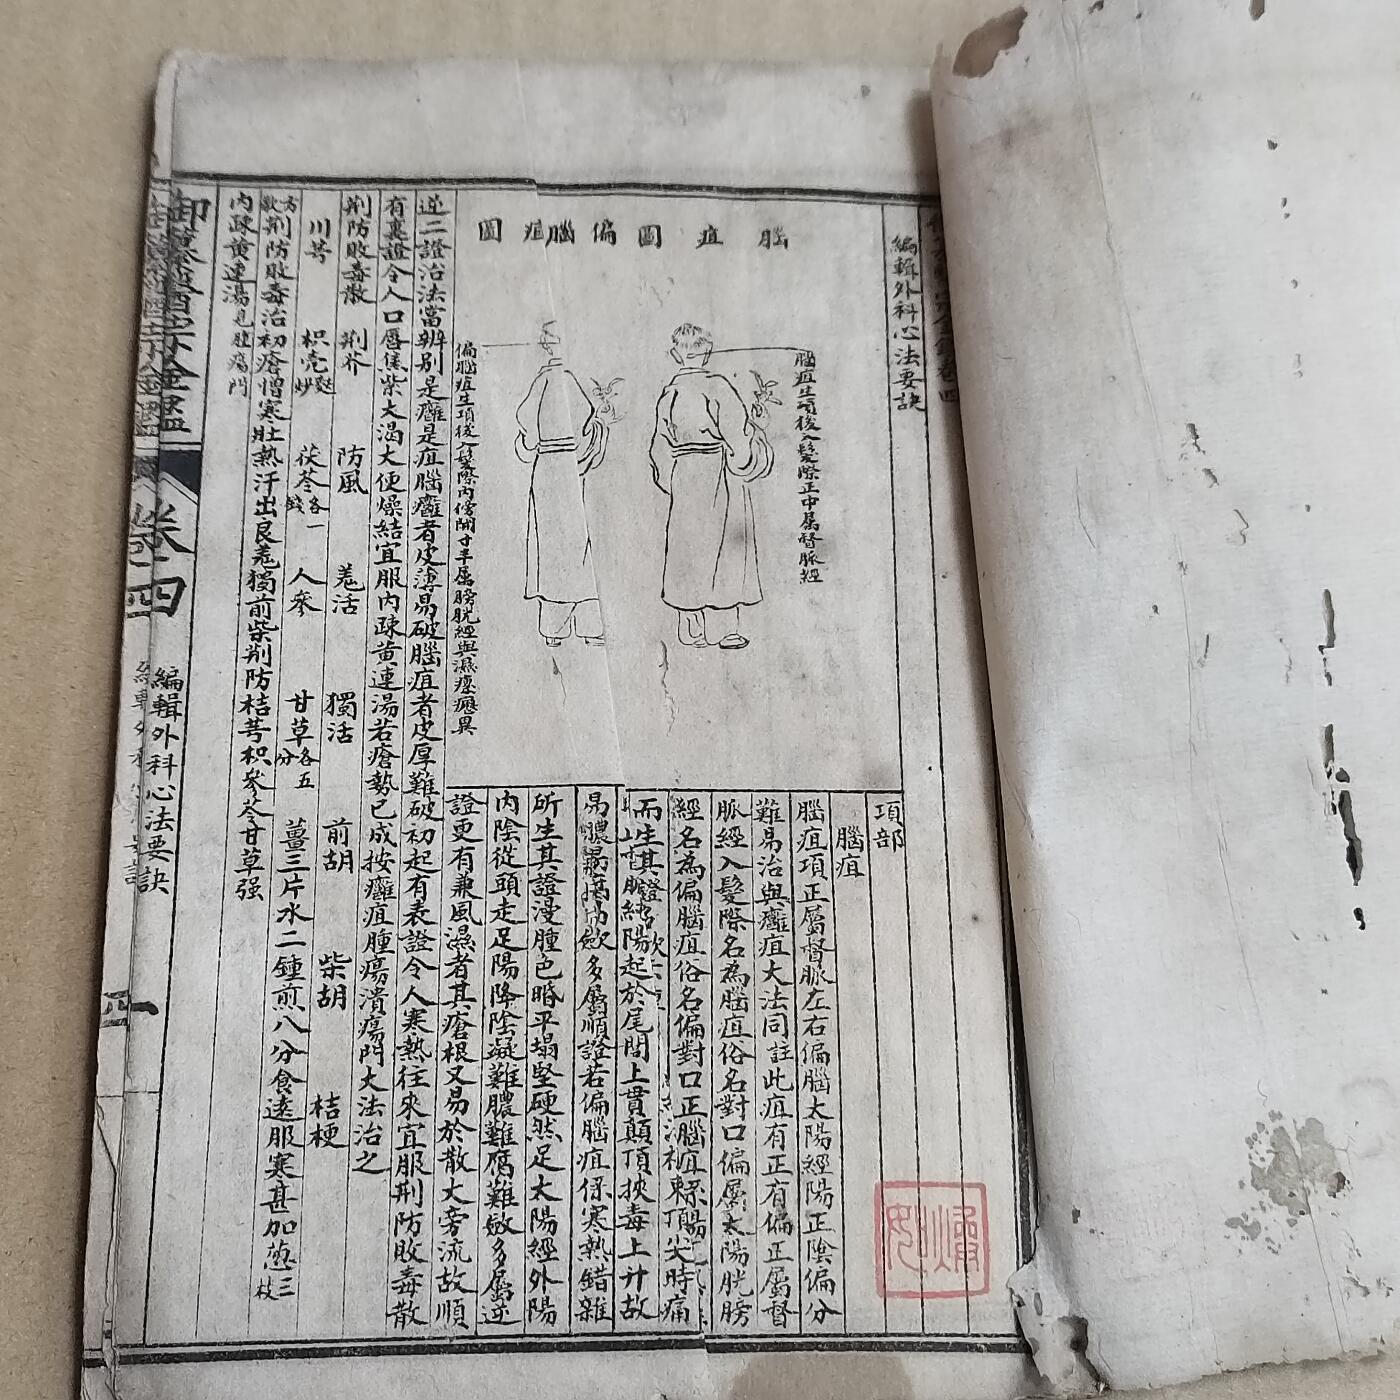 編輯外科心法要訣
腦疽圖
偏腦疽圖
腦疽生項後入髮際正中属督脈經
偏腦疽生項後入髮際內傍開寸半属膀胱經與濕瘂癧異
項部
腦疽
腦疽項正屬督脈左右偏腦太陽經陽正陰偏分
難易治與癰疽大法同註此疽有正有偏正屬督
脈經入髮際名為腦疽俗名對口偏屬太陽胱膀
經名為偏腦疽俗名偏對口正腦疽
起於尾閭上貫顛頂挾毒上升故
多屬順證若偏腦疽係寒熱錯雜
所生其證漫腫色暗平塌堅硬然足太陽經外陽
內陰從頭走足陽降陰凝難膿難腐難斂多屬逆
證更有兼風濕者其瘡根又易於散大旁流故順
逆二證治法當辨別是癰是疽腦癰者皮薄易破腦疽者皮厚難破初起有表證令人寒熱往來宜服荊防敗毒散
有裏證令人口唇焦紫大渴大便燥結宜服內疎黃連湯若瘡勢已成按癰疽腫瘍潰瘍門大法治之
荊防敗毒散 荊芥 防風 羗活 獨活 前胡 柴胡 桔梗
川芎 枳壳麩炒 茯苓各一錢 人參 甘草各五分 薑三片水二鍾煎八分食遠服寒甚加葱三枝
方歌荊防敗毒治初瘡憎寒壯熱汗出良羗獨前柴荊防桔芎枳參苓甘草强
內疎黃連湯見腫瘍門
御纂醫宗金鑑 卷四 編輯外科心法要訣 四